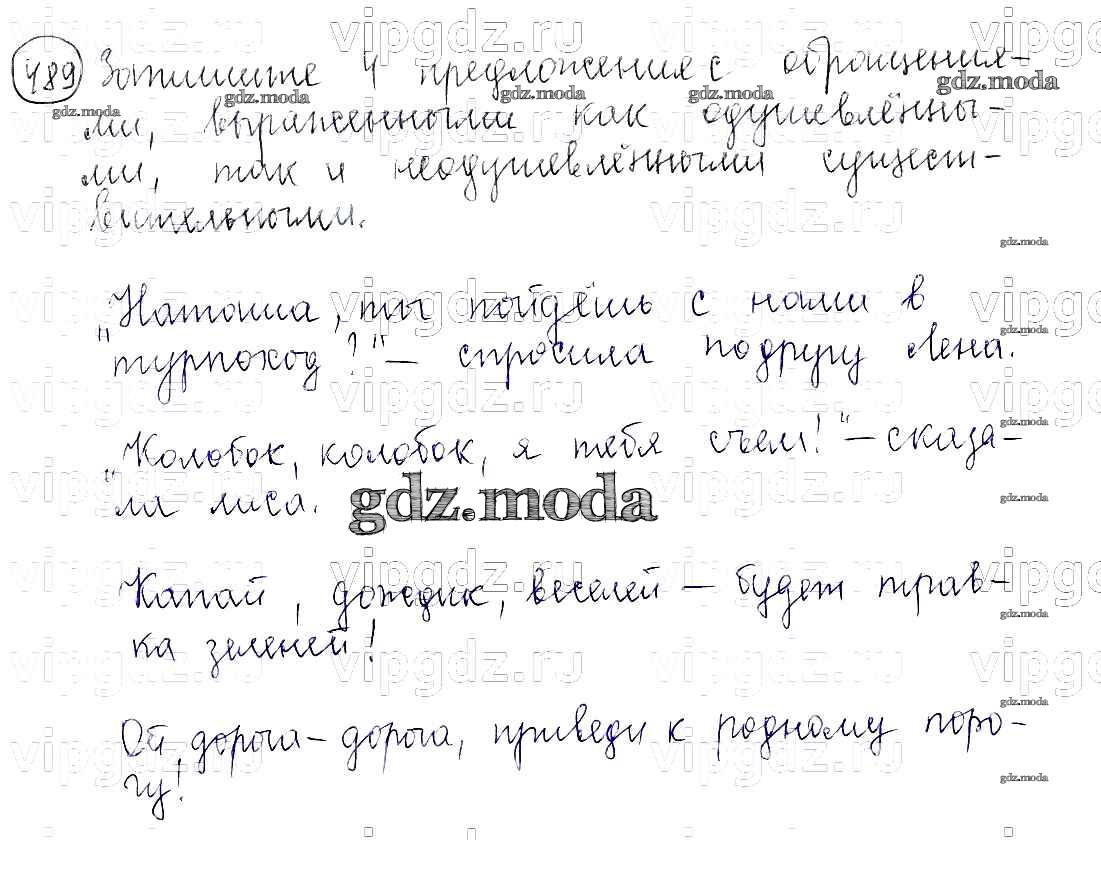 489 Запишите 4 предложения с обращения-
ми, выраженными как одушевлённы-
ми, так и неодушевлёнными сущест-
вительными.
„Наташа, ты пойдёшь с нами в
турпоход?" – спросила подругу Лена.
„Колобок, колобок, я тебя съем!" – сказа-
ла лиса.
gdz.moda
Капай, дождик, веселей – будет трав-
ка зеленей!
Ой дорога-дорога, приведи к родному поро-
гу!